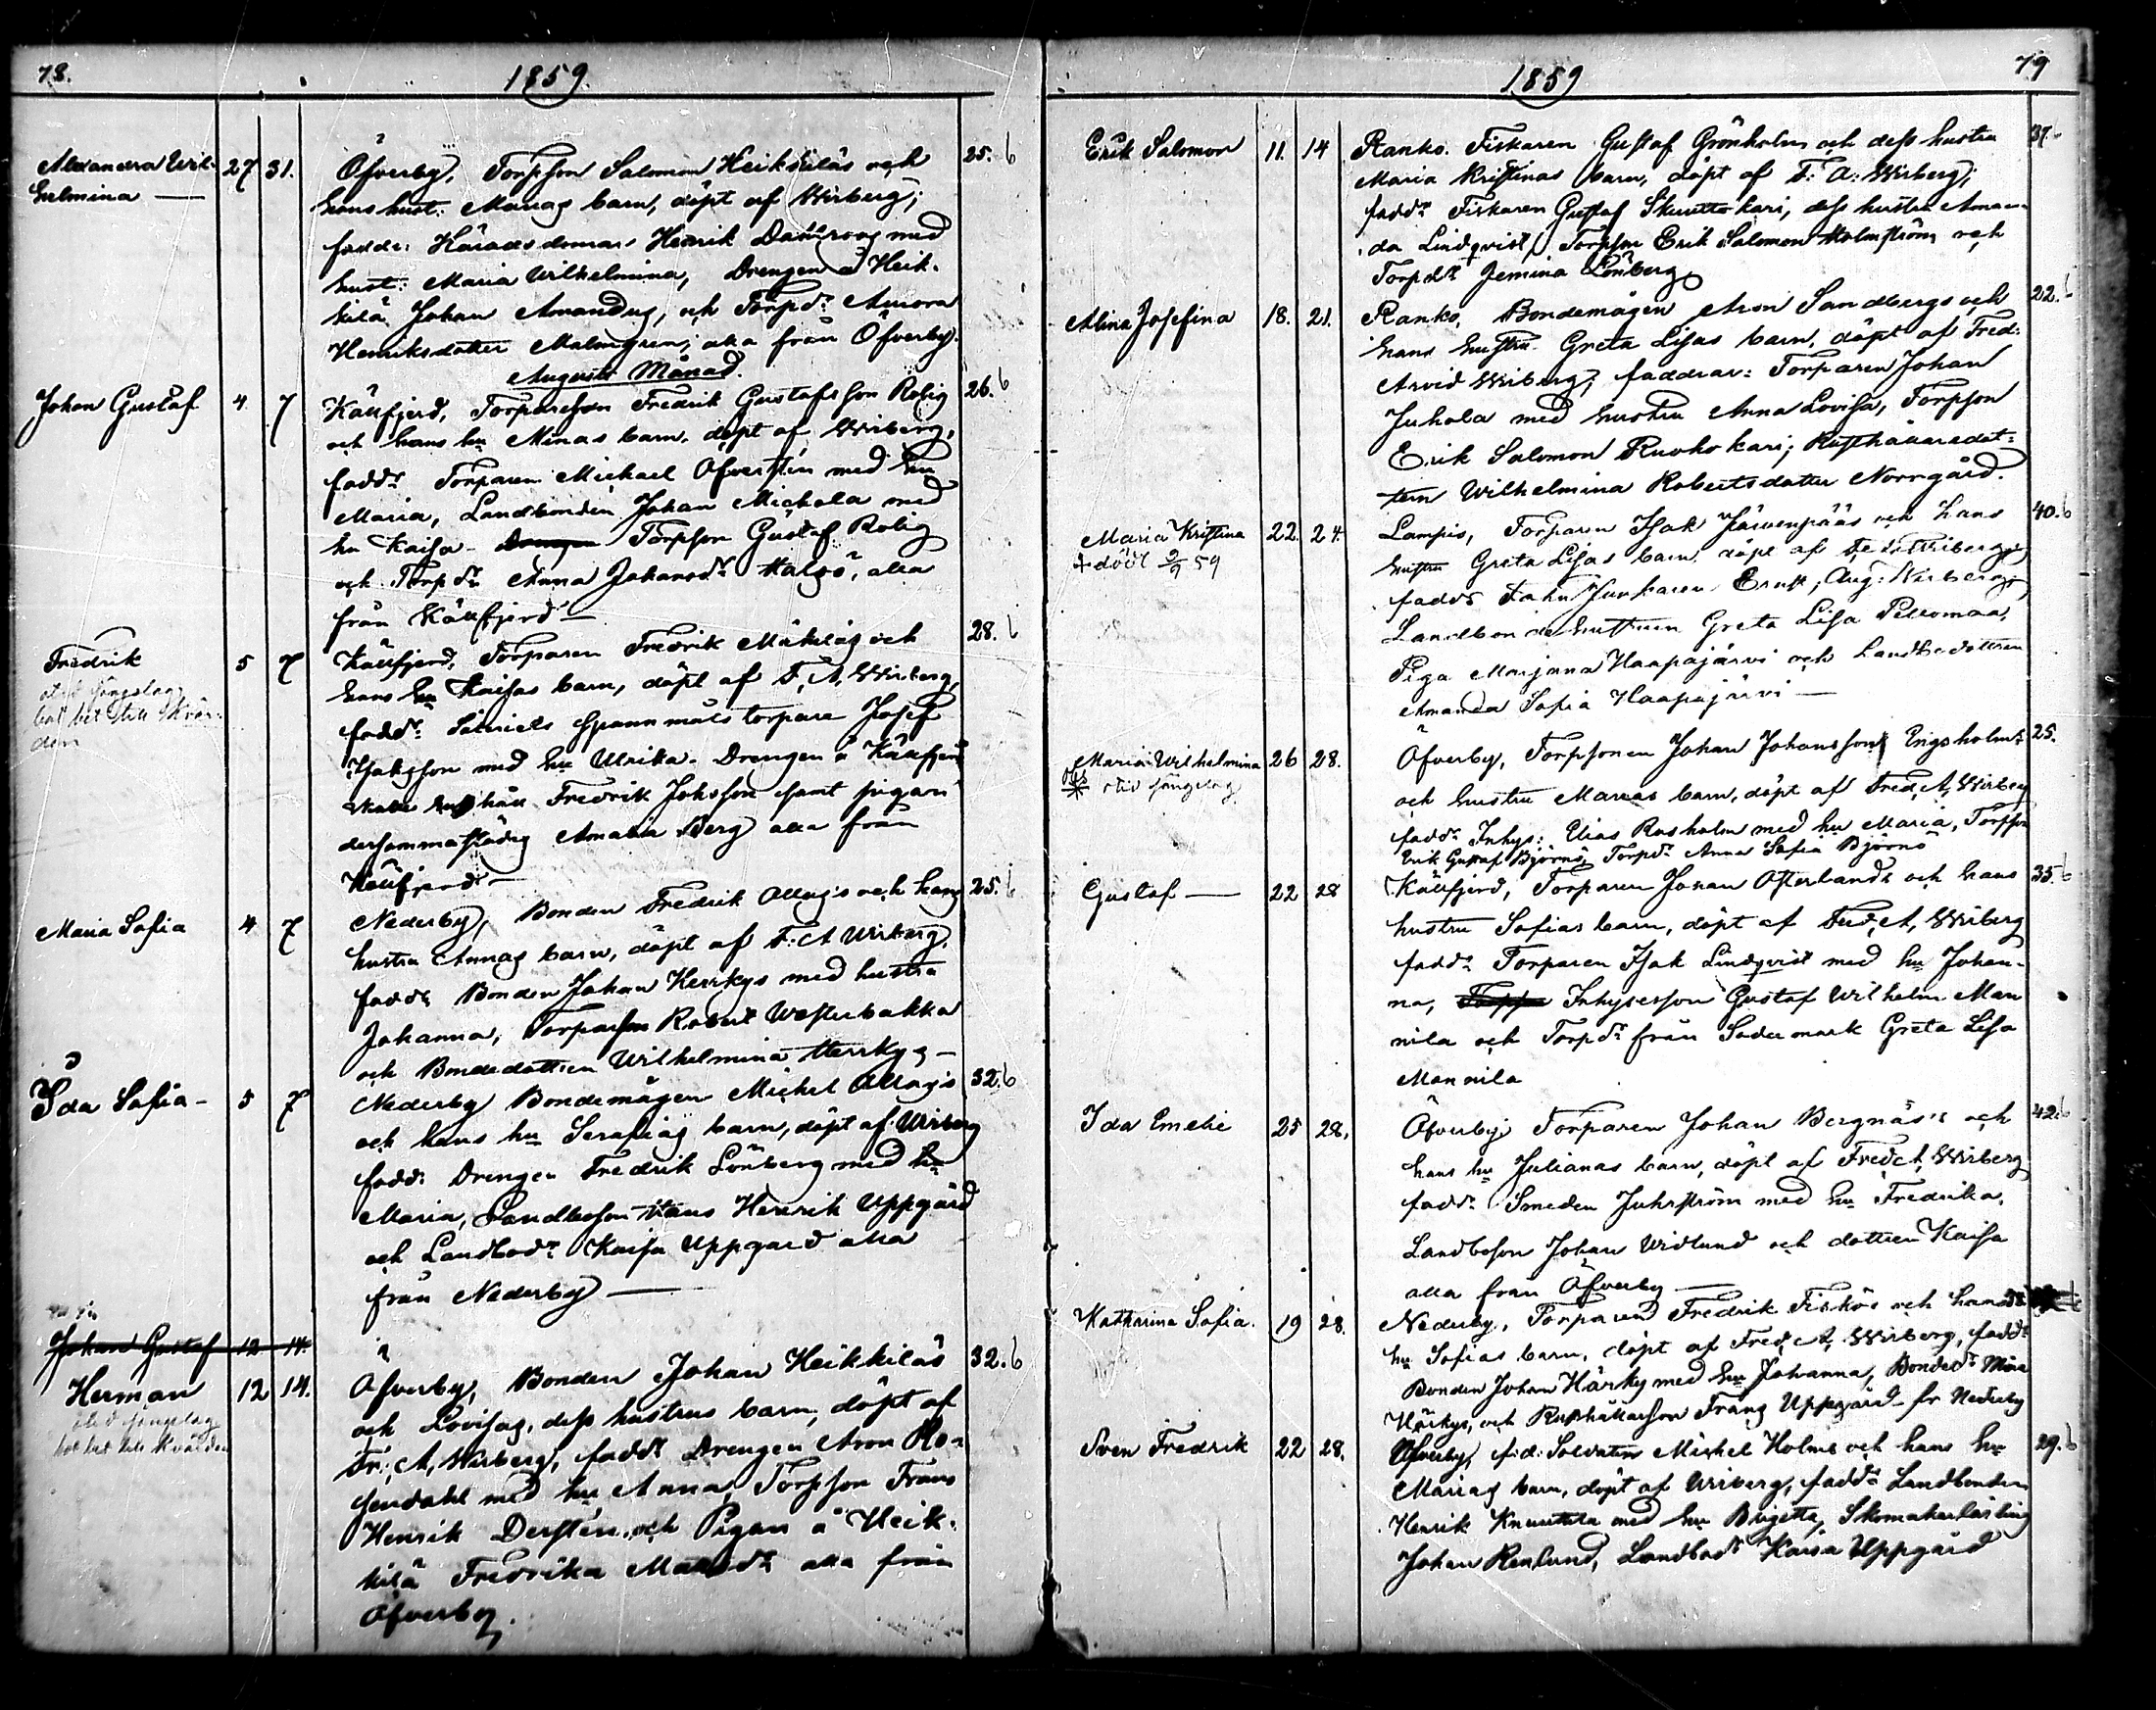 78.
1859.
Alexandra Wil- 27 31. Öfverby, Torpson Salomon Heikkiläs och 25. 6
helmina — hans hust: Marias barn, döpt af Wirberg;
fadde: Häradsdomar Henrik med
hust: Maria Wilhelmina, Drengen å Heik-
kilä Johan Amandus, och Torpdr Aurora
Henriksdotter Malmgren, alla från Öfverby.
Augusti Månad.
Johan Gustaf 4 7 Käufjerd, Torparesson Fredrik Gustafsson Rolig 26. 6
och hans hu Minas barn, döpt af Wirberg,
faddr Torparen Michael Öfverstin med hu
Maria, Landbonden Johan Mickola med
hu Kaisa - Drengen Torpson Gustaf Rolig
och Torpdr Anna Johansdr Malsö, alla
från Käufjerd —
Fredrik 5 7 Käufjerd, Torparen Fredrik Mäkeläs och 28. 6
hans hu Kaisas barn, döpt af F. A. Wirberg,
faddr torpare Josef
med hu Ulrika - Drengen å Käufjerd
Fredrik Johsson samt pigan
dersammastädes Amalia Berg alla från
Käufjerd —
Maria Sofia 4 7 Nederby, Bonden Fredrik Allag's och hans 25. 6
hustru Annas barn, döpt af F. A Wirberg,
faddr Bonden Johan Herrkys med hustru
Johanna, Torparson Robert Westerbakka
och Bondedottren Wilhelmina Herrkys —
Ida Sofia - 5 7 Nederby Bondemågen Michel Allag's 32. 6
och hans hu Serafias barn, döpt af Wirberg
faddr Drengen Fredrik Lönberg med hu
Maria, Landboson Hans Henrik Uppgård
och Landbodr Kaisa Uppgård alla
från Nederby —
Johan Gustaf 12 14.
Herman 12 14. Öfverby, Bonden Johan Heikkiläs 32. 6
och Lovisas, dess hustrus barn, döpt af
Fr: A, Wirberg, faddr Drengen Aron Ro-
sendahl med hu Anna, Torpson Frans
Henrik Dersten, och Pigan å Heik-
kilä Fredrika Matsdr alla från
Öfverby.
79
1859
Erik Salomon 11. 14 Ranko. Fiskaren Gustaf Grönholm och dess hustru 37. 6
Maria Kristinas barn, döpt af F. A: Wirberg;
faddr Fiskaren Gustaf Skuuttakari, dess hustru Aman-
da Lindqvist, Torpson Erik Salomon Malmström och
Torpdr Jemina Lönberg
Alina Josefina 18. 21. Ranko, Bondemågen Aron Sandbergs och 22. 6
hans hustru Greta Lisas barn, döpt af Fred:
Arvid Wirberg; faddrar: Torparen Johan
Juhola med hustru Anna Lovisa, Torpson
Erik Salomon Ruohokari; Rusthållaredot-
tern Wilhelmina Robertsdotter Norrgård.
Maria Kristina 22. 24. Lampis, Torparen Isak Järvenpääs och hans 40. 6
† död 2/9 59 hustru Greta Lisas barn, döpt af Fr. A. Wirberg,
faddr Fahnjunkaren Ernst, Aug: Wirberg,
Landbondehustrun Greta Lisa Peltomaa,
Piga Marjana Haapajärvi och Landbodottren
Amanda Sofia Haapajärvi —
Maria Wilhelmina 26 28. Öfverby, Torpsonen Johan Johansson Engsholms 25.
och hustru Marias barn, döpt af Fred, A, Wirberg
faddr Inhys: Elias Rosholm med hu Maria, Torpson
Erik Gustaf Björnö, Torpdr Anna Sofia Björnö
Gustaf — 22 28 Käufjerd, Torparen Johan Österlunds och hans 35. 6
hustru Sofias barn, döpt af Fred, A, Wirberg
faddr Torparen Isak Lindqvist med hu Johan-
na, Torpson Inhysesson Gustaf Wilhelm Man
nila och Torpdr från Södermark Greta Lisa
Mannila
Ida Emelie 25 28. Öfverby Torparen Johan Bergnäs's och 42. 6
hans hu Julianas barn, döpt af Fred A, Wirberg
faddr Smeden Juhrström med hu Fredrika,
Landboson Johan Widlund och dottren Kaisa
alla från Öfverby —
Katharina Sofia. 19 28. Nederby, Torparen Fredrik Fiskös och hans
hu Sofias barn, döpt af Fred, A, Wirberg, faddr
Bonden Johan Härky med hu Johanna, Bondedr Mina
Härkys, och Rusthållarson Frans Uppgård fr Nederby
Sven Fredrik 22 28. Öfverby, f.d: Soldaten Michel Holms och hans hu 29. 6
Marias barn, döpt af Wirberg, faddr Landbonden
Henrik Knuuttila med hu Brigetta, Skomakarlärling
Johan Renlund, Landbodr Kaisa Uppgård